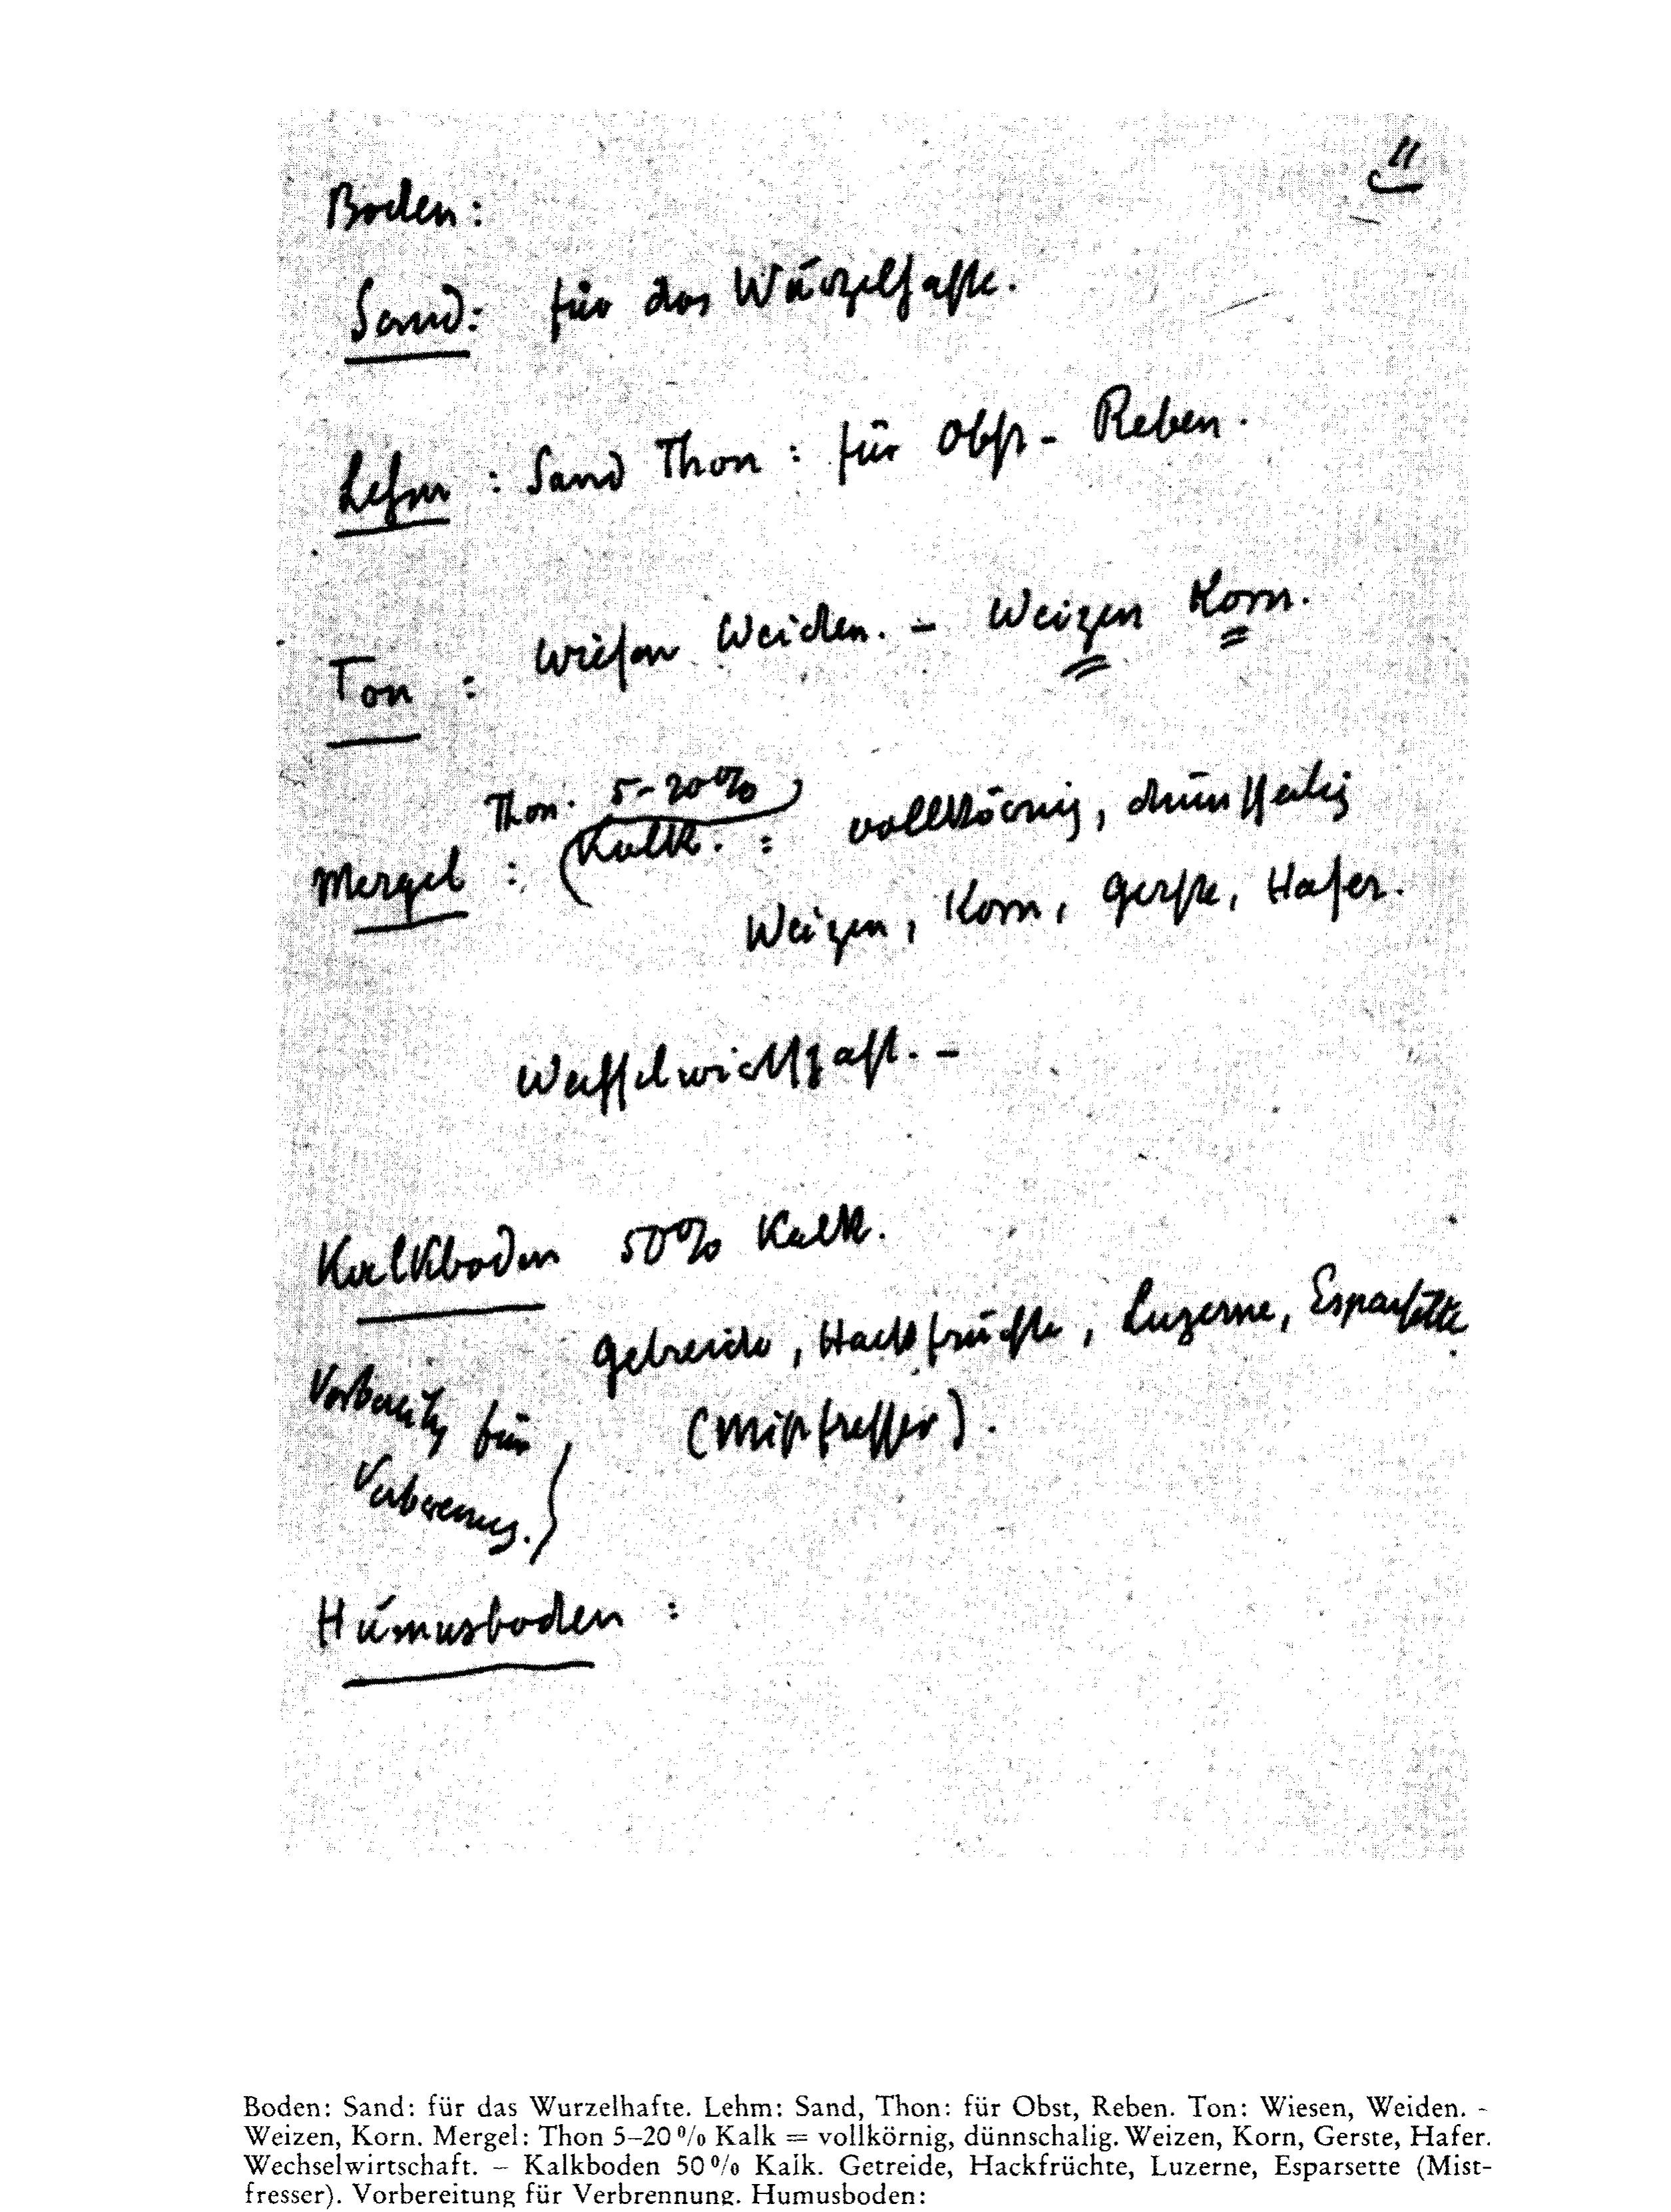 11
Boden:
Sand: für das Wurzelhafte.
Lehm : Sand Thon : für Obst - Reben.
Ton : Wiesen Weiden. - Weizen Korn.
Thon. 5-20%
Mergel : (Kalk. : vollkörnig, dünnschalig
Weizen, Korn, Gerste, Hafer.
Wechselwirtschaft. -
Kalkboden 50% Kalk.
Getreide, Hackfrüchte, Luzerne, Esparsette
Vorbereitg für (Mistfresser).
Verbrennug.
Humusboden :
Boden: Sand: für das Wurzelhafte. Lehm: Sand, Thon: für Obst, Reben. Ton: Wiesen, Weiden. -
Weizen, Korn. Mergel: Thon 5–20% Kalk = vollkörnig, dünnschalig. Weizen, Korn, Gerste, Hafer.
Wechselwirtschaft. – Kalkboden 50% Kalk. Getreide, Hackfrüchte, Luzerne, Esparsette (Mist-
fresser). Vorbereitung für Verbrennung. Humusboden: